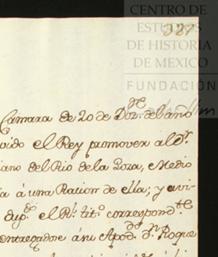 CENTRO DE
ESTUDIOS
DE HISTORIA
DE MÉXICO
FUNDACIÓN
Camara de 20 de Dre. del año
el Rey promover al Dr.
iano del Rio de la Loza, Medio
à una Racion de ella; y
el Rl. titº. correspondte.
entregadose à su Apodº. Dn. Roque